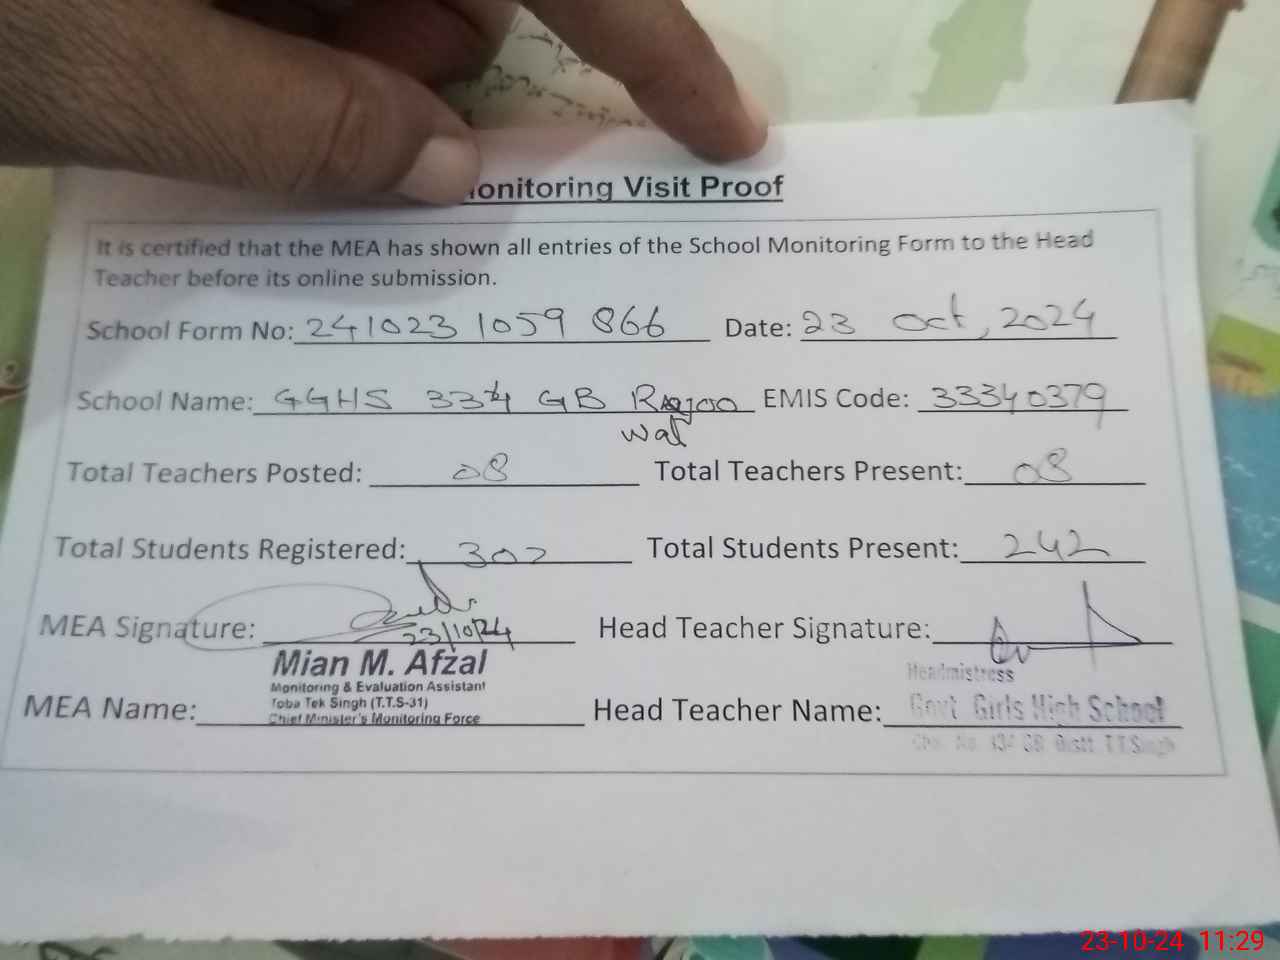 onitoring Visit Proof
It is certified that the MEA has shown all entries of the School Monitoring Form to the Head
Teacher before its online submission.
School Form No: 241023 1059 866 Date: 23 Oct, 2024
School Name: GGHS 334 GB Rajoo EMIS Code: 33340379
wal
Total Teachers Posted: 08 Total Teachers Present: 08
Total Students Registered: 302 Total Students Present: 242
MEA Signature: 23/10/24 Head Teacher Signature:
Mian M. Afzal
Monitoring & Evaluation Assistant
Toba Tek Singh (T.T.S-31)
Chief Minister's Monitoring Force
MEA Name: Head Teacher Name:
Headmistress
Govt Girls High School
GB Distt T.T.Singh
23-10-24 11:29